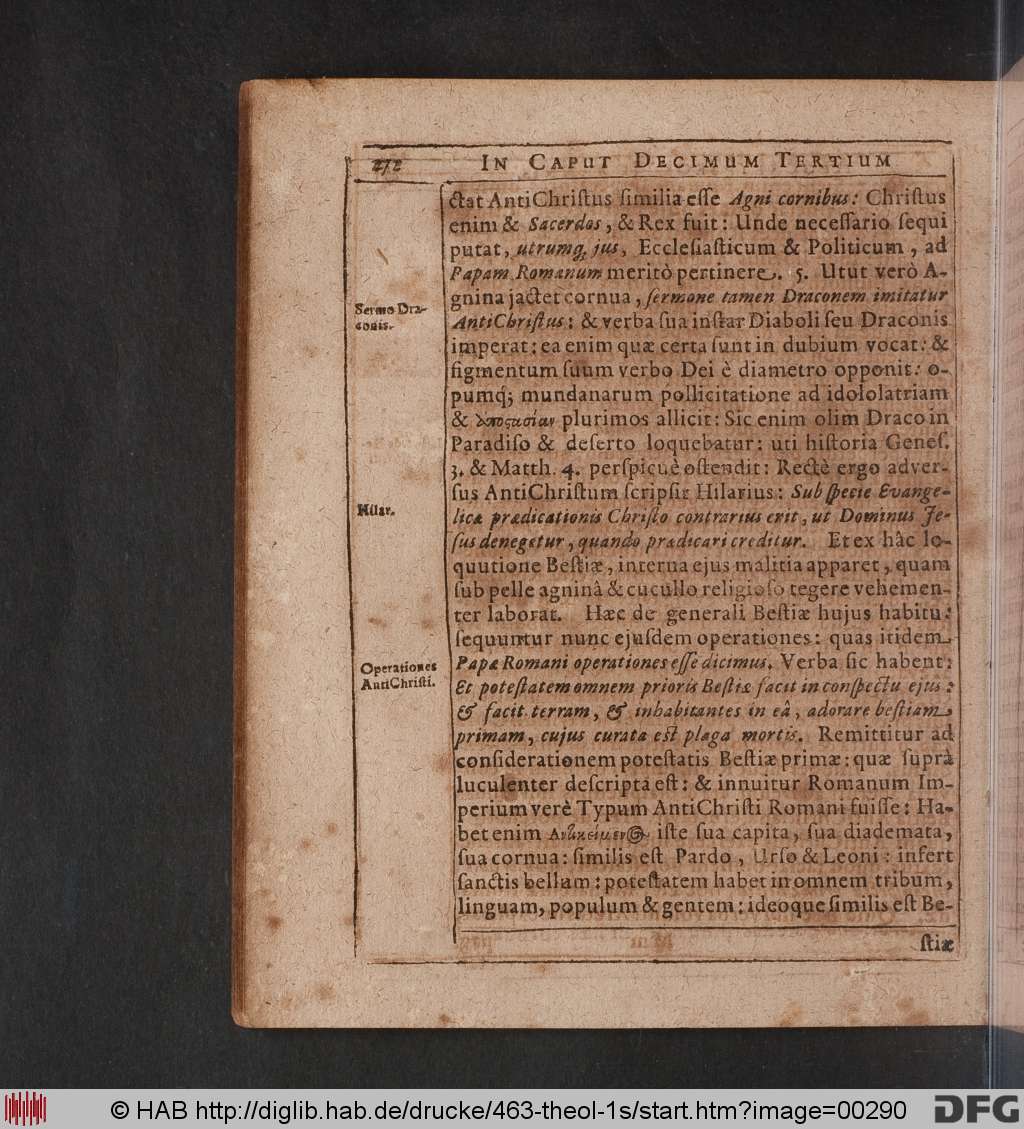 272 IN CAPUT DECIMUM TERTIUM
ctat AntiChristus similia esse Agni cornibus: Christus
enim & Sacerdos, & Rex fuit: Unde necessario sequi
putat, utrumq; jus, Ecclesiasticum & Politicum, ad
Papam Romanum meritò pertinere. 5. Utut verò A-
gnina jactet cornua, sermone tamen Draconem imitatur
Sermo Dra-
conis.
AntiChristus: & verba sua instar Diaboli seu Draconis
imperat: ea enim quæ certa sunt in dubium vocat: &
figmentum suum verbo Dei è diametro opponit: o-
pumq; mundanarum pollicitatione ad idololatriam
& ἀποστασίαν plurimos allicit: Sic enim olim Draco in
Paradiso & deserto loquebatur: uti historia Genes.
3. & Matth. 4. perspicuè ostendit: Rectè ergo adver-
sus AntiChristum scripsit Hilarius: Sub specie Evange-
Hilar.
licæ prædicationis Christo contrarius erit, ut Dominus Je-
sus denegetur, quando prædicari creditur. Et ex hâc lo-
quutione Bestiæ, interna ejus malitia apparet, quam
sub pelle agninâ & cucullo religioso tegere vehemen-
ter laborat. Hæc de generali Bestiæ hujus habitu:
sequuntur nunc ejusdem operationes: quas itidem
Operationes
AntiChristi.
Papæ Romani operationes esse dicimus. Verba sic habent:
Et potestatem omnem prioris Bestiæ facit in conspectu ejus:
& facit terram, & inhabitantes in eâ, adorare bestiam
primam, cujus curata est plaga mortis. Remittitur ad
considerationem potestatis Bestiæ primæ: quæ suprà
luculenter descripta est: & innuitur Romanum Im-
perium verè Typum AntiChristi Romani fuisse: Ha-
bet enim Ἀντικείμενος iste sua capita, sua diademata,
sua cornua: similis est Pardo, Urso & Leoni: infert
sanctis bellum: potestatem habet in omnem tribum,
linguam, populum & gentem: ideoque similis est Be-
stiæ
© HAB http://diglib.hab.de/drucke/463-theol-1s/start.htm?image=00290
DFG